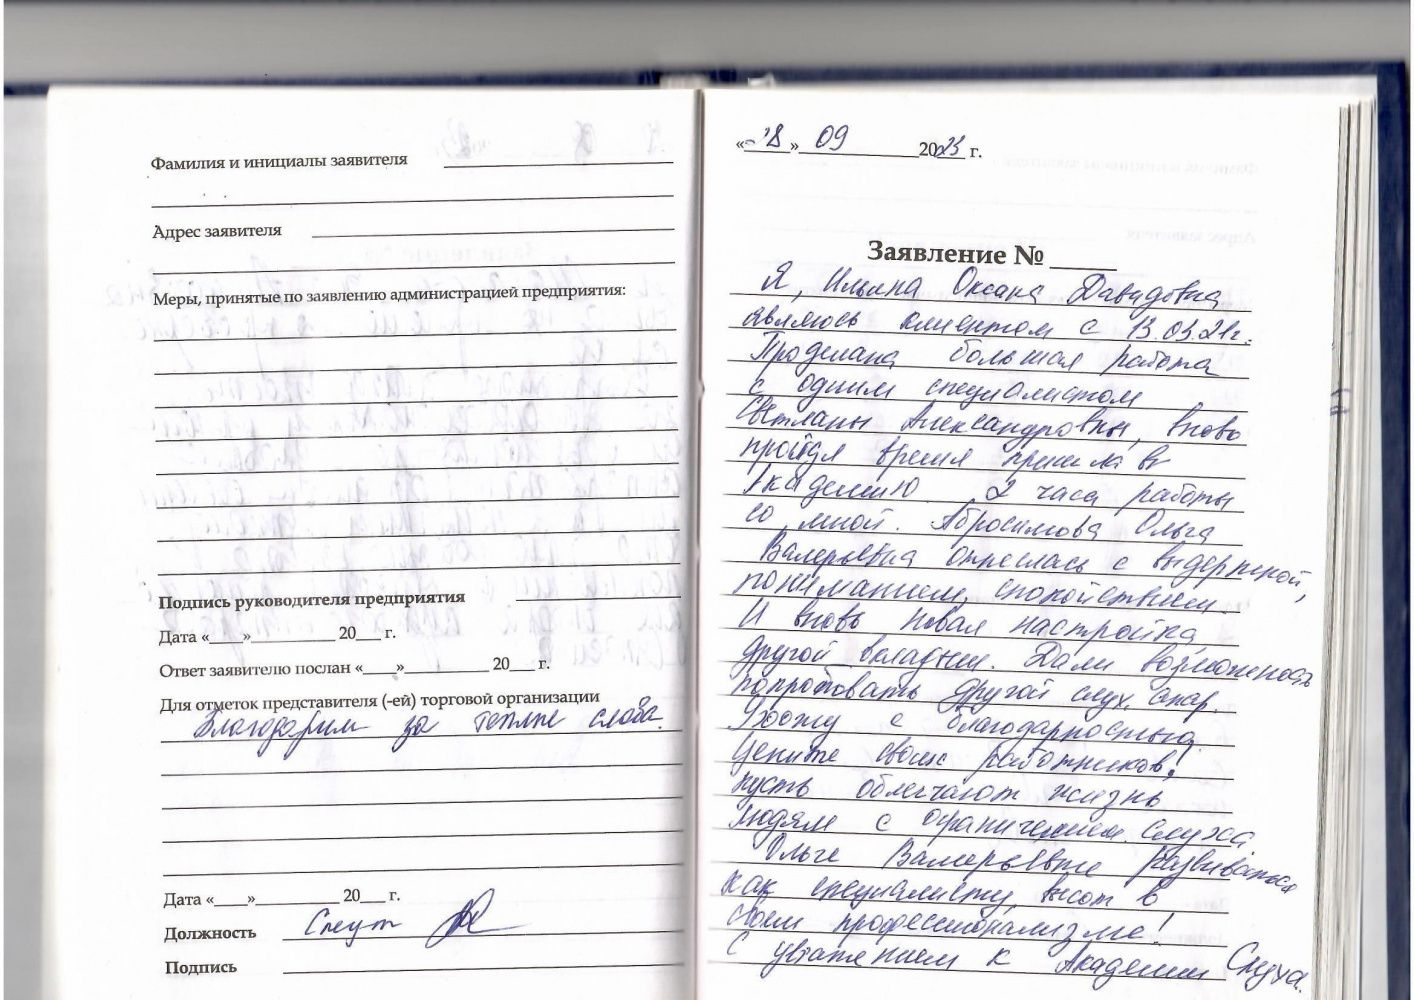 Фамилия и инициалы заявителя
Адрес заявителя
Меры, принятые по заявлению администрацией предприятия:
Подпись руководителя предприятия
Дата «___»__________ 20___ г.
Ответ заявителю послан «___»__________ 20___ г.
Для отметок представителя (-ей) торговой организации
Благодарим за теплые слова.
Дата «___»__________ 20___ г.
Должность
Подпись
« 18 » 09 2023 г.
Заявление № ____
Я, Ильина Оксана Давидовна
являюсь клиентом с 13.03.21г.
Проделана большая работа
с одним специалистом
Светланы Александровны, вновь
пройдя время пришла в
Академию. 2 часа работы
со мной. Абросимова Ольга
Валерьевна отнеслась с выдержкой,
пониманием, спокойствием.
И вновь новая настройка,
другой вкладыш. Дали возможность
попробовать другой слух. апар.
Ухожу с благодарностью.
Цените своих работников!
пусть облегчают жизнь
людям с ограничением слуха
Ольге Валерьевне развиваться
как специалисту, высот в
своем профессионализме!
С уважением к Академии Слуха.